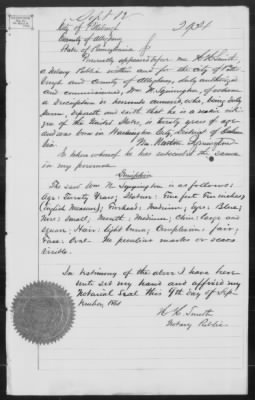 Sept 12
City of Pittsburgh
County of Allegheny
State of Pennsylvania
Personally appeared before me H. H. Smith,
a Notary Public within and for the City of Pitts-
burgh and County of Allegheny, duly authorized
and commissioned, Wm. N. of whom
a description is hereunto annexed, who, being duly
sworn, deposeth and saith that he is a native citi-
zen of the United States, is twenty years of age
and was born in Washington City, District of Colum-
bia.
Wm. Newton
In whose of he has subscribed the same
in my presence
Description
The said Wm. N. is as follows:
Age: Twenty Years; Stature: Five feet Ten inches;
(English Measure); Forehead: Medium; Eyes: Blue;
Nose: Small; Mouth: Medium; Chin: large and
square; Hair: light brown; Complexion: fair;
Face: Oval. No peculiar marks or scars
visible.
In testimony of the above I have here-
unto set my hand and affixed my
Notarial Seal this 9th day of Sep-
tember,
H. H. Smith
Notary Public